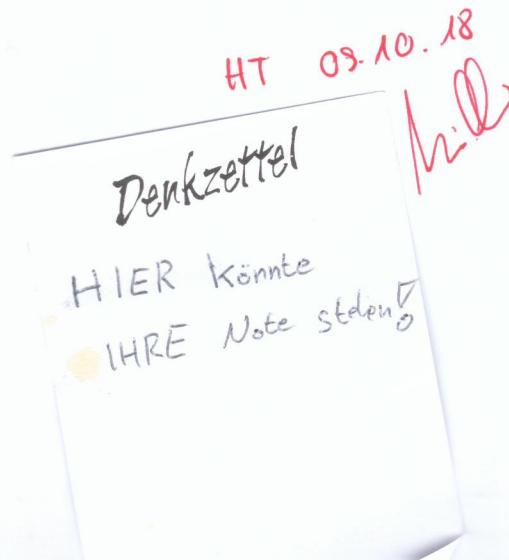 HT 09.10.18
Denkzettel
HIER könnte
IHRE Note stehen!